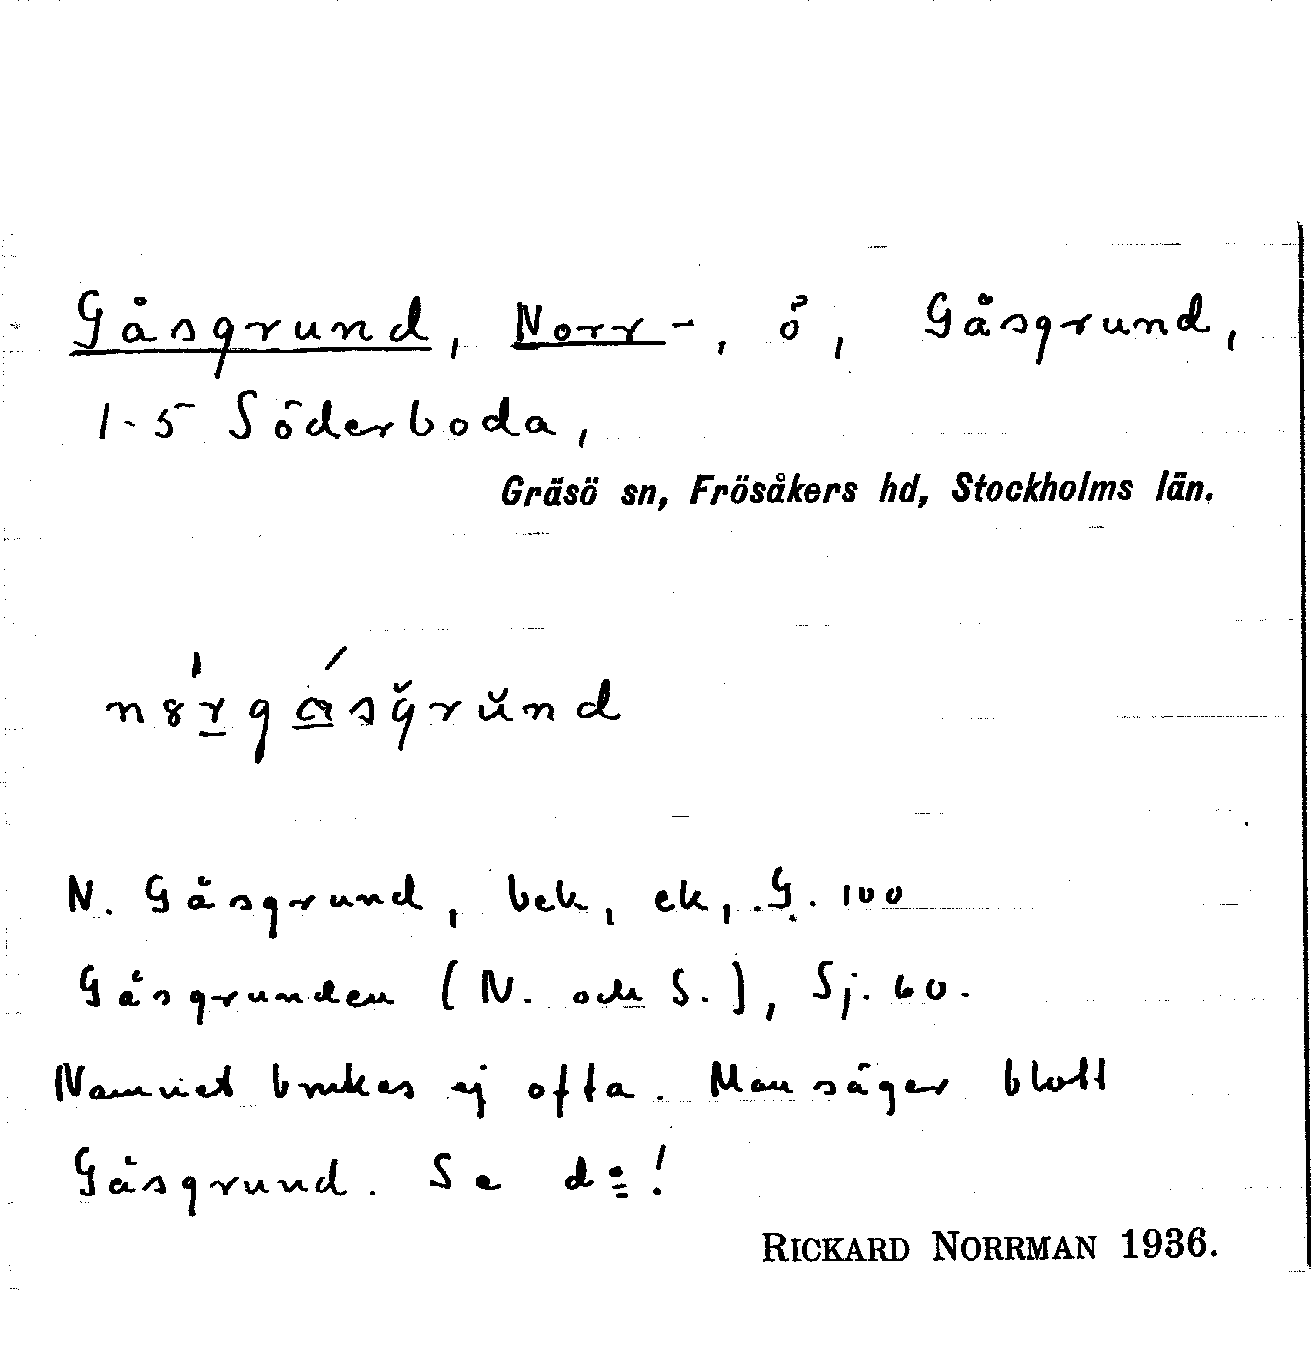 Gåsgrund, Norr-, ö, Gåsgrund,
1-5 Söderboda,
Gräsö sn, Frösåkers hd, Stockholms län.
N. Gåsgrund, bek, ek, G. 100
Gåsgrunden (N. och S.), Sj. 60.
Namnet brukas ej ofta. Man säger blott
Gåsgrund. Se d:o!
RICKARD NORRMAN 1936.